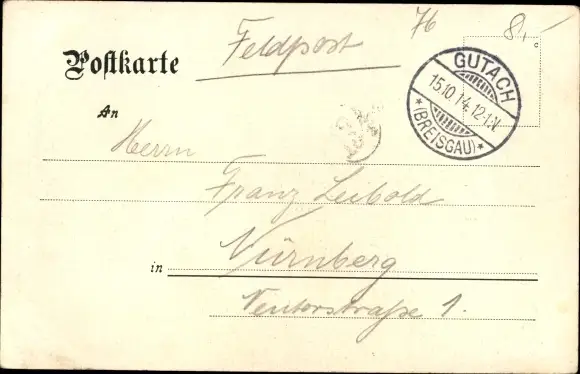 Feldpost
76
8,-
Postkarte
GUTACH
15.10.14.12-1N.
*(BREISGAU)*
An
Herrn
Franz Leibold
in Nürnberg
Neutorstraße 1.